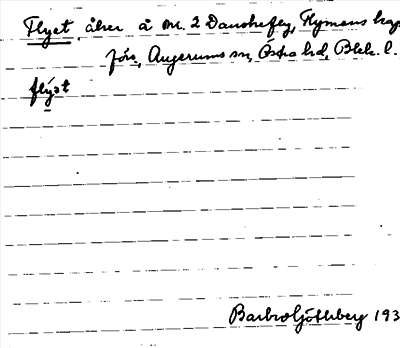 Flyet, åker å nr. 2 Danskefly, Flymens kap-
förs., Augerums sn, Östra hd, Blek. l.
flýət
Barbro Götherberg 193